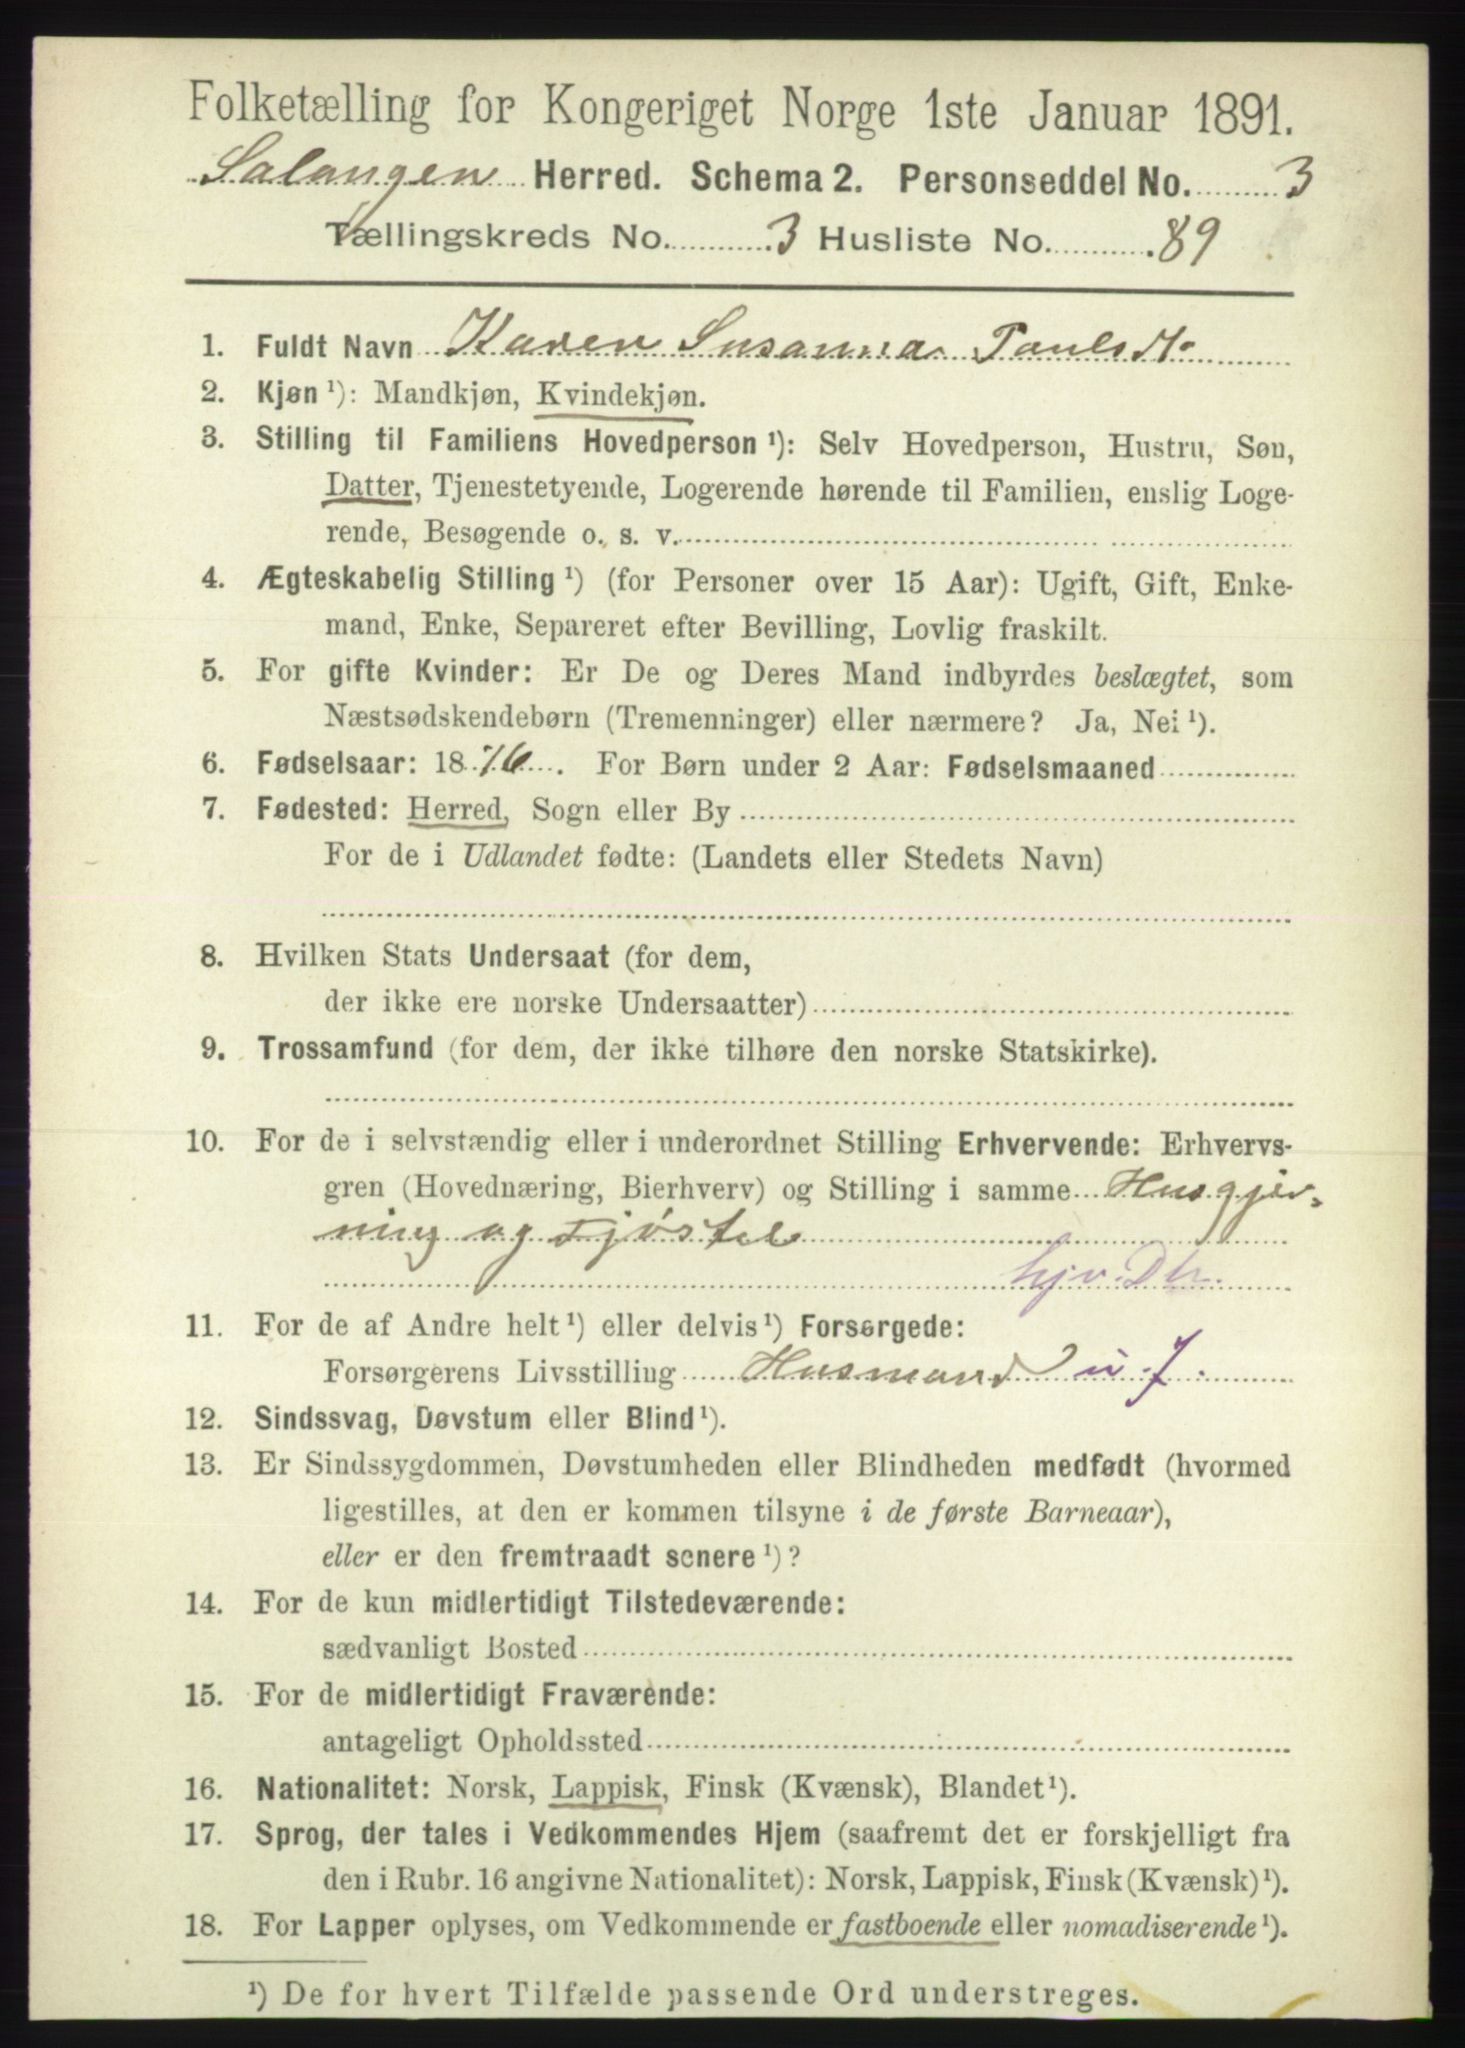 Folketælling for Kongeriget Norge 1ste Januar 1891.
Salangen Herred. Schema 2. Personseddel No. 3
Tællingskreds No. 3 Husliste No. 89
1. Fuldt Navn Karen Susanna Paulsdt.
2. Kjøn ¹): Mandkjøn, Kvindekjøn.
3. Stilling til Familiens Hovedperson ¹): Selv Hovedperson, Hustru, Søn,
Datter, Tjenestetyende, Logerende hørende til Familien, enslig Loge-
rende, Besøgende o. s. v.
4. Ægteskabelig Stilling ¹) (for Personer over 15 Aar): Ugift, Gift, Enke-
mand, Enke, Separeret efter Bevilling, Lovlig fraskilt.
5. For gifte Kvinder: Er De og Deres Mand indbyrdes beslægtet, som
Næstsødskendebørn (Tremenninger) eller nærmere? Ja, Nei ¹).
6. Fødselsaar: 1876. For Børn under 2 Aar: Fødselsmaaned
7. Fødested: Herred, Sogn eller By
For de i Udlandet fødte: (Landets eller Stedets Navn)
8. Hvilken Stats Undersaat (for dem,
der ikke ere norske Undersaatter)
9. Trossamfund (for dem, der ikke tilhøre den norske Statskirke).
10. For de i selvstændig eller i underordnet Stilling Erhvervende: Erhvervs-
gren (Hovednæring, Bierhverv) og Stilling i samme Husgjer-
ning og Fjøstel
hjv. Dtr.
11. For de af Andre helt ¹) eller delvis ¹) Forsørgede:
Forsørgerens Livsstilling Husmand u. J.
12. Sindssvag, Døvstum eller Blind ¹).
13. Er Sindssygdommen, Døvstumheden eller Blindheden medfødt (hvormed
ligestilles, at den er kommen tilsyne i de første Barneaar),
eller er den fremtraadt senere ¹)?
14. For de kun midlertidigt Tilstedeværende:
sædvanligt Bosted
15. For de midlertidigt Fraværende:
antageligt Opholdssted
16. Nationalitet: Norsk, Lappisk, Finsk (Kvænsk), Blandet ¹).
17. Sprog, der tales i Vedkommendes Hjem (saafremt det er forskjelligt fra
den i Rubr. 16 angivne Nationalitet): Norsk, Lappisk, Finsk (Kvænsk) ¹).
18. For Lapper oplyses, om Vedkommende er fastboende eller nomadiserende ¹).
¹) De for hvert Tilfælde passende Ord understreges.